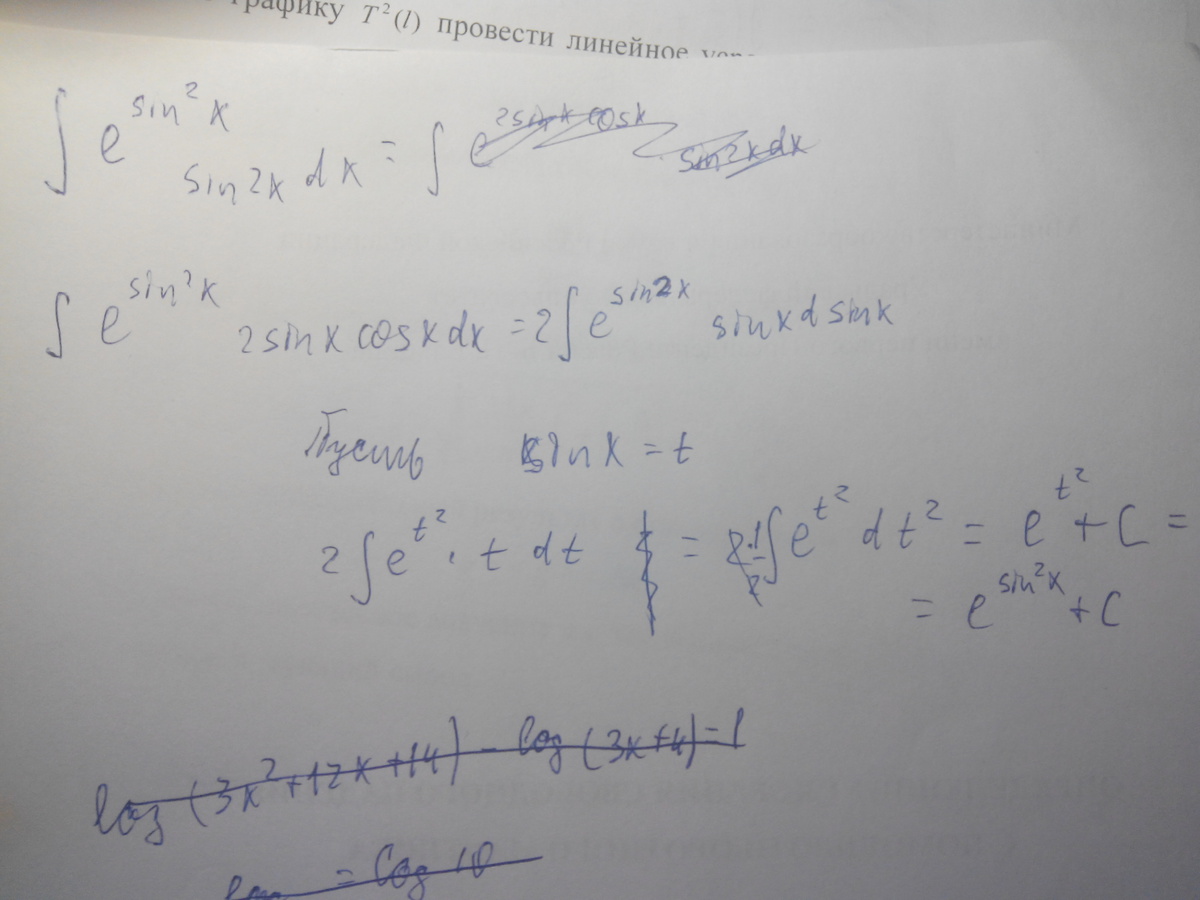 графику T²(l) провести линейное
∫ e^{sin²x} sin2x dx = ∫ e^{2sinx cosx} sin2x dx
∫ e^{sin²x} 2sinx cosx dx = 2∫ e^{sin2x} sinx d sinx
Пусть sinx = t
2∫e^{t²} · t dt = 2·1/2 ∫e^{t²} dt² = e^{t²} + C =
= e^{sin²x} + C
log (3x²+12x+14) - log (3x+4) = 1
= log 10